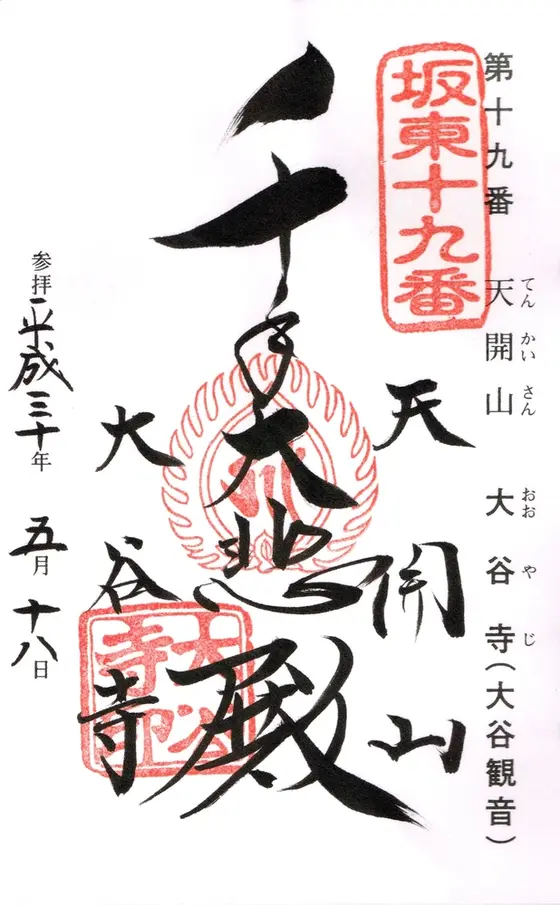 第十九番 天開山 大谷寺(大谷観音)
てんかいさん おおやじ
坂東十九番
天開山
千手大悲殿
大谷寺
大谷寺印
参拝平成三十年 五月十八日